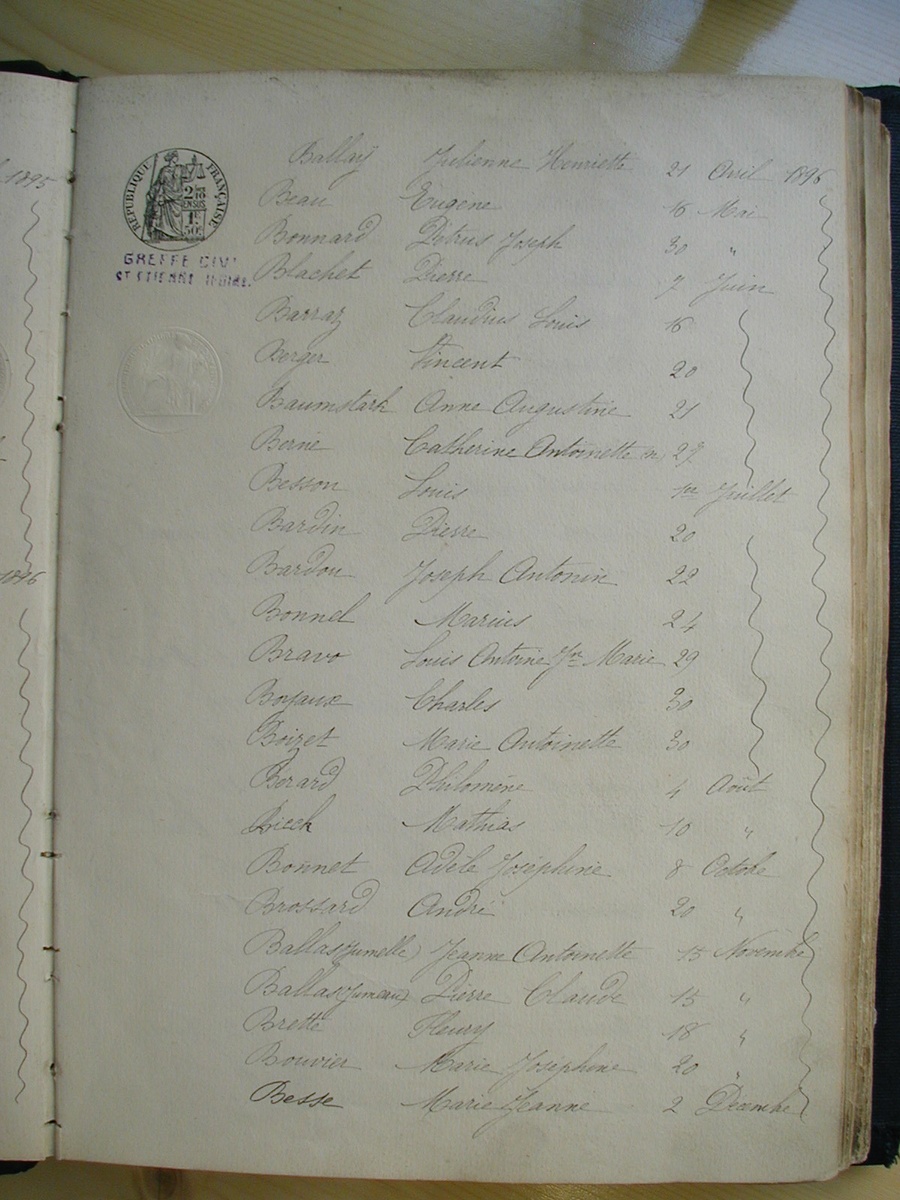 1895
1896
RÉPUBLIQUE FRANÇAISE
GREFFE CIVIL
Ballay Julienne Henriette 21 Avril 1896
Beau Eugène 16 Mai
Bonnard Pétrus Joseph 30 "
Blachet Pierre 7 Juin
Barraz Claudius Louis 16
Berger Vincent 20
Baumstark Anne Augustine 21
Berne Catherine Antoinette 27
Besson Louis 1er Juillet
Bardin Pierre 20
Bardou Joseph Antonin 22
Bonnel Marius 24
Bravo Louis Antoine Jn Marie 29
Boyaux Charles 30
Boizet Marie Antoinette 30
Bérard Philomène 4 Août
Biech Mathias 10 "
Bonnet Adèle Joséphine 8 Octobre
Brossard André 20 "
Ballas (Jumelle) Jeanne Antoinette 15 Novembre
Ballas (Jumeau) Pierre Claude 15 "
Brette Fleury 18 "
Bouvier Marie Joséphine 20 "
Besse Marie Jeanne 2 Décembre